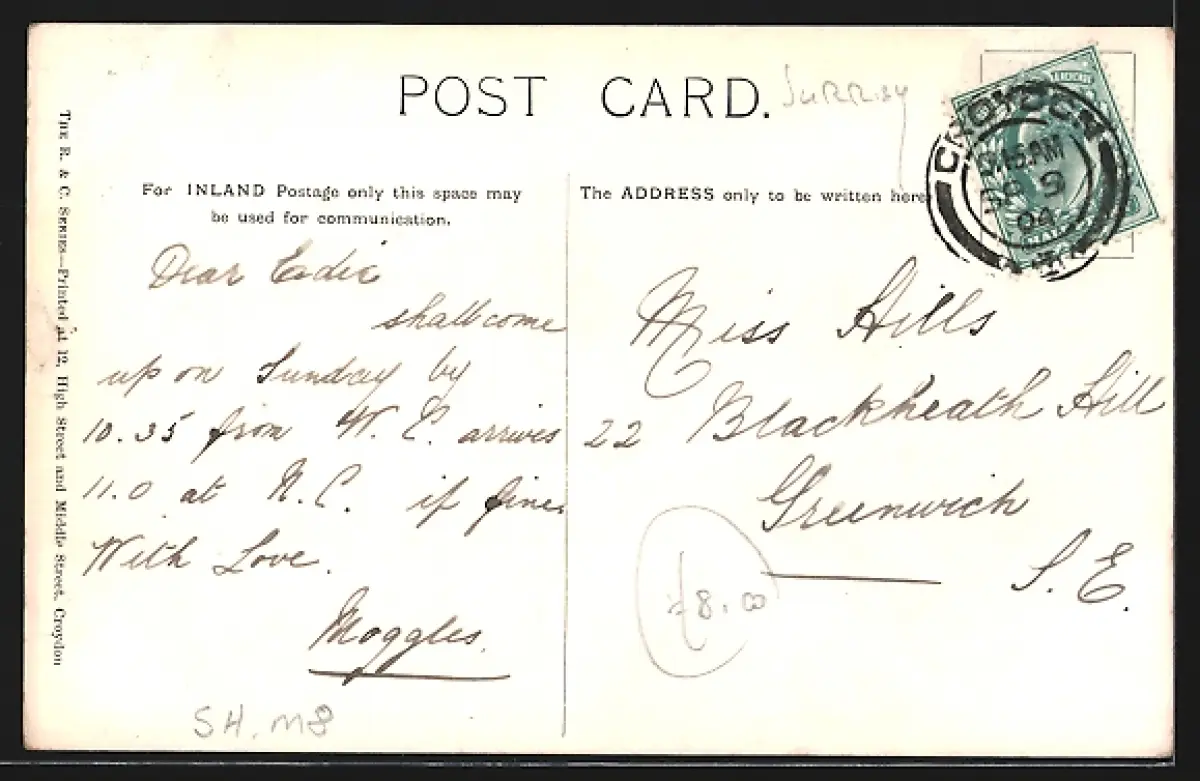 POST CARD.
Surrey
For INLAND Postage only this space may
be used for communication.
The ADDRESS only to be written here
THE R. & C. SERIES—Printed at 12, High Street and Middle Street, Croydon
CROYDON
AM
SP 9
04
Dear Eadie
shall come
up on Sunday by
10.35 from W. C. arrives
11.0 at N. C. if fine
With Love.
Moggles.
SH. M8
Miss Hills
22 Blackheath Hill
Greenwich
S. E.
£8.00